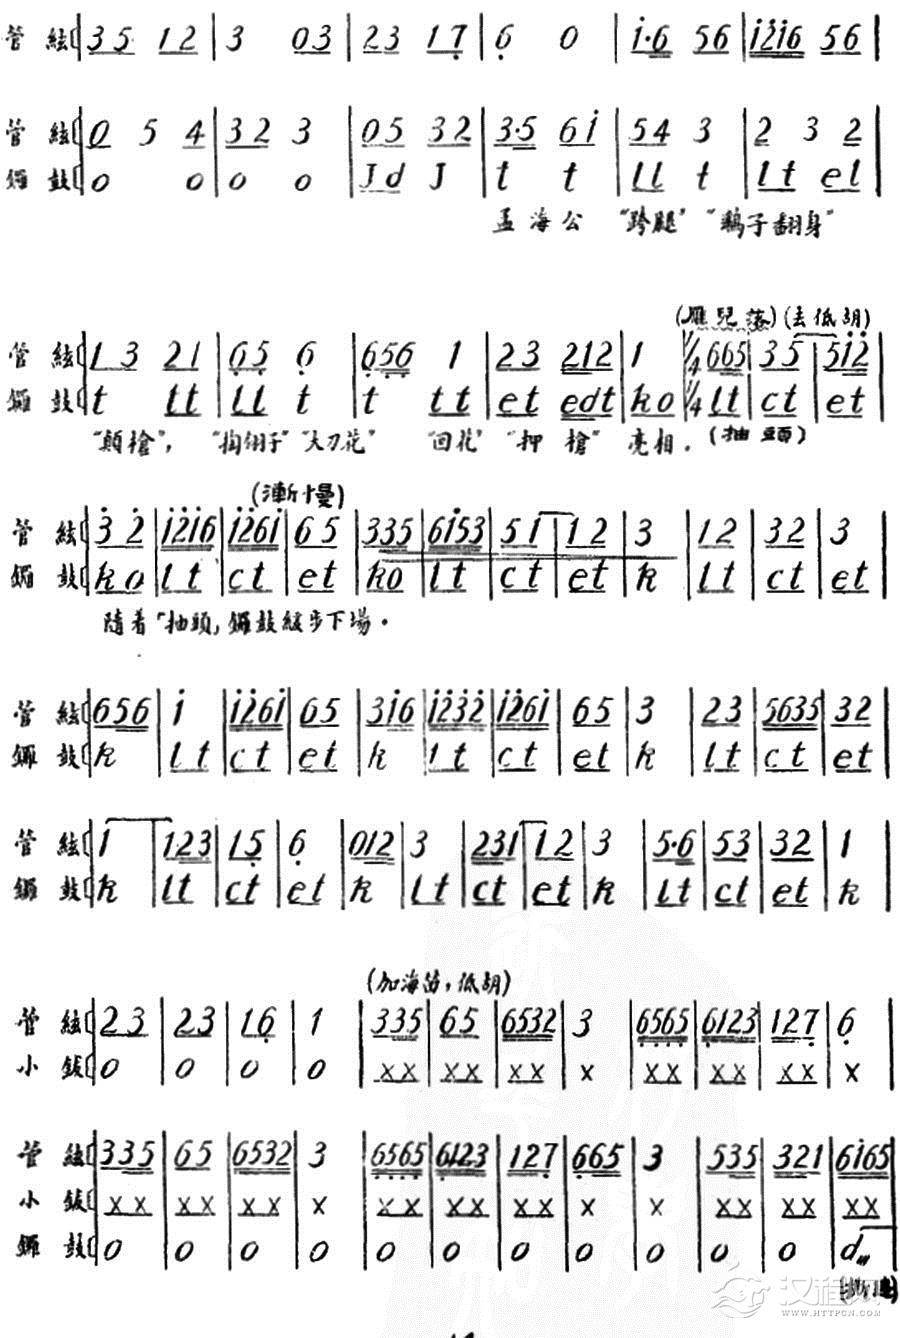 管 絃 3 5 1 2 | 3 0 3 | 2 3 1 7 | 6 0 | i·6 5 6 | i 2 i 6 5 6 |
管 絃 0 5 4 | 3 2 3 | 0 5 3 2 | 3·5 6 i | 5 4 3 | 2 3 2 |
鑼 鼓 0 0 | 0 0 | J d J | t t | l l t | l t e l |
孟海公 "跨腿" "鷂子翻身"
(雁兒落) (去低胡)
管 絃 1 3 2 1 | 6 5 6 | 6 5 6 1 | 2 3 2 1 2 | 1 | 1/4 6 6 5 | 3 5 | 5 i 2 |
鑼 鼓 t t t | l l t | t t t | e t e d t | k o | 1/4 l t | c t | e t |
"顛槍", "掏翎子" "大刀花" "回花" "押槍" 亮相. (抽頭)
(漸慢)
管 絃 3 2 | i 2 i 6 | i 2 6 i | 6 5 | 3 3 5 | 6 i 5 3 | 5 1 | 1 2 | 3 | 1 2 | 3 2 | 3
鑼 鼓 k o | l t | c t | e t | k o | l t | c t | e t | k | l t | c t | e t
隨着「抽頭」鑼鼓緩步下場.
管 絃 6 5 6 | i | i 2 6 i | 6 5 | 3 i 6 | i 2 3 2 | i 2 6 i | 6 5 | 3 | 2 3 | 5 6 3 5 | 3 2 |
鑼 鼓 k | l t | c t | e t | k | l t | c t | e t | k | l t | c t | e t |
管 絃 1 | 1 2 3 | 1 5 | 6 | 0 1 2 | 3 | 2 3 1 | 1 2 | 3 | 5·6 | 5 3 | 3 2 | 1
鑼 鼓 k | l t | c t | e t | k | l t | c t | e t | k | l t | c t | e t | k
(加海笛,低胡)
管 絃 2 3 | 2 3 | 1 6 | 1 | 3 3 5 | 6 5 | 6 5 3 2 | 3 | 6 5 6 5 | 6 1 2 3 | 1 2 7 | 6
小 鈸 0 | 0 | 0 | 0 | X X | X X | X X | X | X X | X X | X X | X
管 絃 3 3 5 | 6 5 | 6 5 3 2 | 3 | 6 5 6 5 | 6 1 2 3 | 1 2 7 | 6 6 5 | 3 | 5 3 5 | 3 2 1 | 6 i 6 5
小 鈸 X X | X X | X X | X | X X | X X | X X | X | X | X X | X X | X X
鑼 鼓 0 | 0 | 0 | 0 | 0 | 0 | 0 | 0 | 0 | 0 | 0 | d
汉程网
WWW.HTTPCN.COM